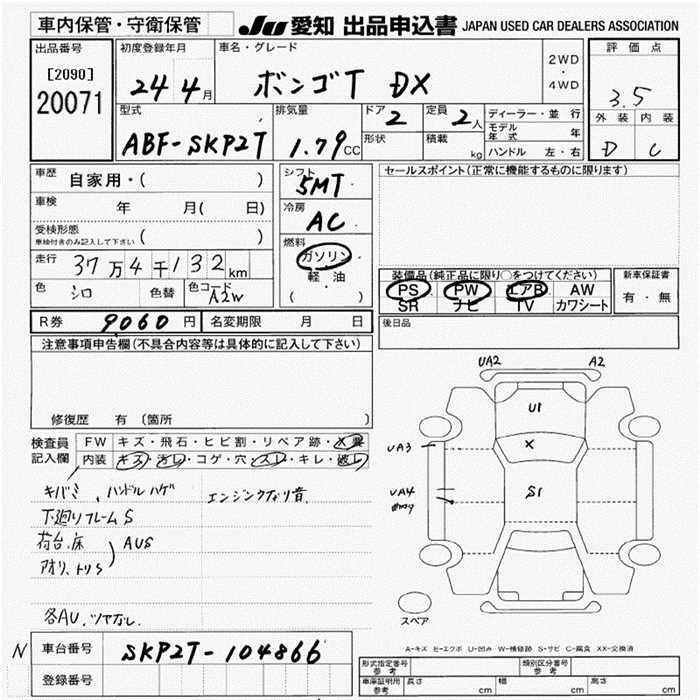 車内保管・守衛保管
JU 愛知 出品申込書 JAPAN USED CAR DEALERS ASSOCIATION
出品番号
[2090]
20071
初度登録年月
24 4月
車名・グレード
ボンゴT DX
2WD
・
4WD
評価点
3.5
外装 内装
D C
型式
ABF-SKP2T
排気量
1.79 CC
ドア
2
定員
2人
形状
積載
kg
ディーラー・並行
モデル年式 年
ハンドル 左・右
車歴 自家用・( )
車検 年 月( 日)
受検形態
車検付きのみ記入して下さい ( )
走行 37万4千132km
色 シロ 色替 色コード A2W
シフト
5MT
冷房
AC
燃料
ガソリン
・
軽・油
( )
セールスポイント(正常に機能するものに限ります)
装備品(純正品に限り○をつけてください)
PS PW エアB AW
SR ナビ TV カワシート
新車保証書
有・無
R券 9060円 名変期限 月 日
後日品
注意事項申告欄(不具合内容等は具体的に記入して下さい)
修復歴 有〔箇所 〕
検査員
記入欄
FW キズ・飛石・ヒビ割・リペア跡・X要
内装 キズ・汚レ・コゲ・穴・スレ・キレ・破レ
キバミ、ハンドルハゲ
エンジンうなり音
下廻りフレームS
荷台.床
アオリ、トリS
AUS
各AU.ツメなし
UA2 A2
U1
X
UA3
S1
UA4
スペア
A-キズ E-エクボ U-凹み W-補修跡 S-サビ C-腐食 XX-交換済
N 車台番号 SKP2T-104866
登録番号
形式指定番号
参考
類別区分番号
参考
車庫証明用
参考
長さ cm 幅 cm 高さ cm